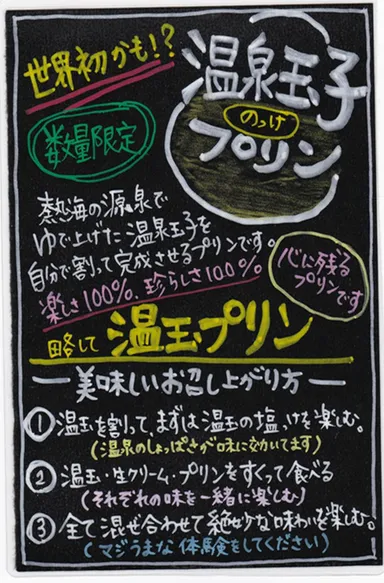 世界初かも!?
温泉玉子
のっけ
プリン
数量限定
熱海の源泉で
ゆで上げた温泉玉子を
自分で割って完成させるプリンです。
楽しさ100%、珍らしさ100%。
心に残る
プリンです
略して 温玉プリン
―美味しいお召し上がり方―
① 温玉を割って、まずは温玉の塩、けを楽しむ。
(温泉のしょっぱさが味に効いてます)
② 温玉・生クリーム・プリンをすくって食べる
(それぞれの味を一緒に楽しむ)
③ 全て混ぜ合わせて絶妙な味わいを楽しむ。
(マジうまな体験をしてください)